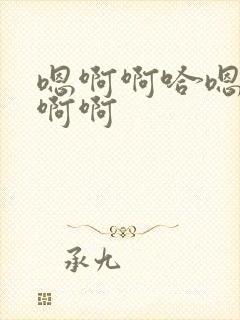 嗯啊啊哈~嗯
啊啊
承九